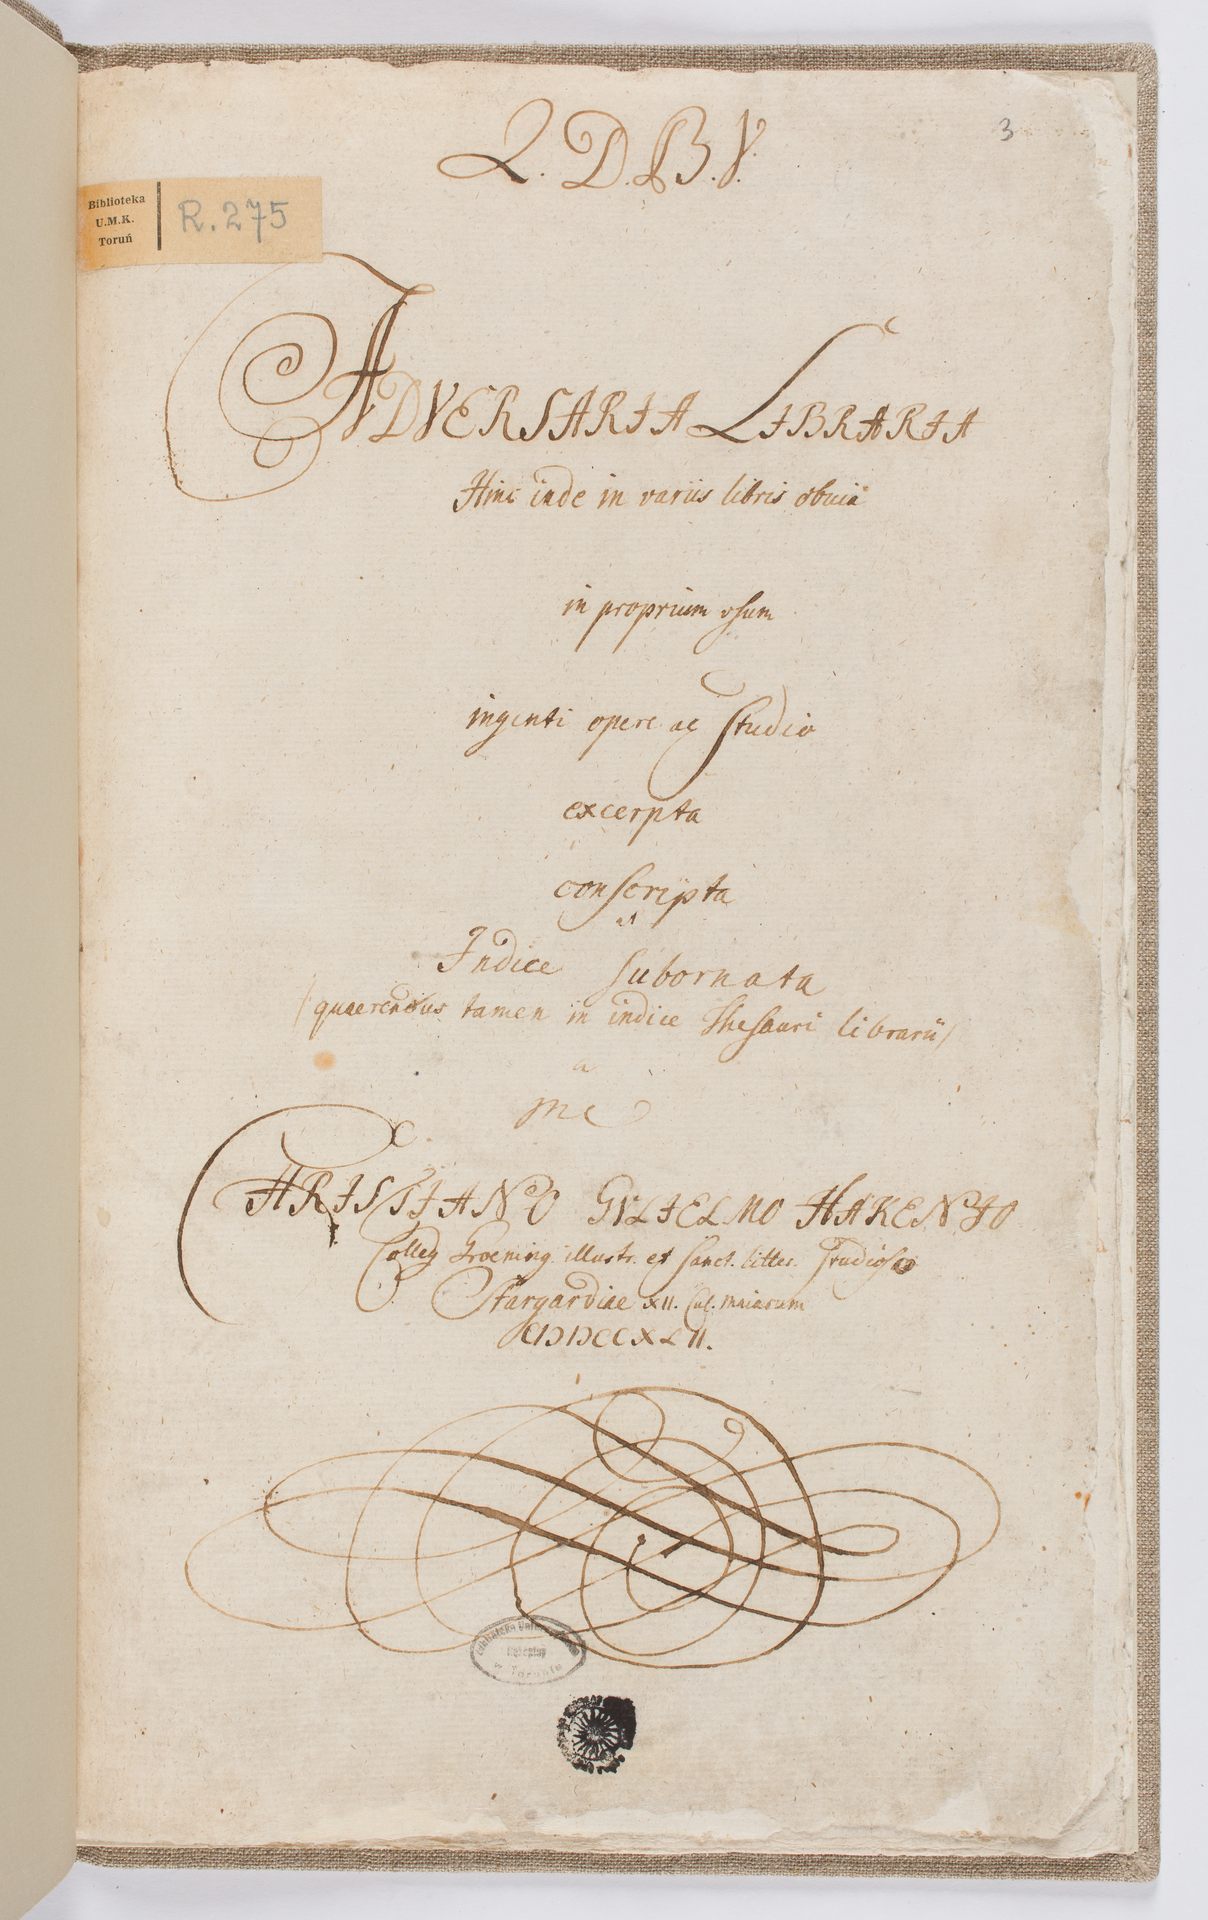 Q. D. B. V.
3
Biblioteka
U.M.K.
Toruń
R. 275
ADVERSARIA LIBRARIA
Hinc inde in variis libris obuia
in proprium vsum
ingenti opere ac Studio
excerpta
conscripta
et
Indice subornata
(quaerendus tamen in indice Thesauri librarii)
a
me
CHRISTIANO GVLIELMO HAKENIO
Colleg Groening illustr. et sanct. litter. studioso
Stargardiae XII. Cal. maiarum
CIƆIƆCCXLII.
Biblioteka Uniwersytecka
w Toruniu